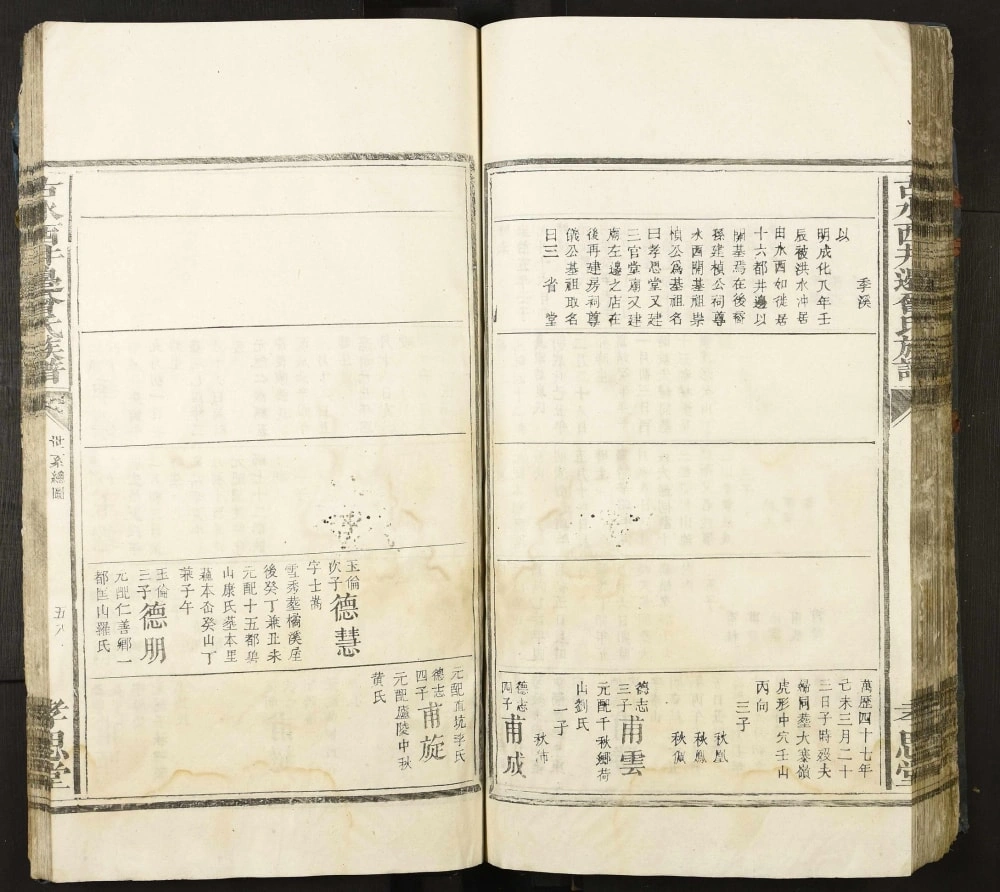 吉水西井邊曾氏族譜
孝思堂
季溪
以
明成化八年壬
辰被洪水冲居
由水西如徙居
十六都井邊以
開基焉在後裔
孫建楨公祠尊
水西開基祖崇
楨公爲基祖名
曰孝思堂又建
三官堂廟又建
廟左邊之店在
後再建房祠尊
儀公基祖取名
曰三省堂
萬歷四十七年
己未三月二十
二日子時歿夫
婦同塟大寨嶺
虎形中穴壬山
丙向
三子
秋鳳
秋佩
德志
三子甫雲
元配千秋鄉荷
山劉氏
一子
秋沛
德志
四子甫成
玉倫
次子德慧
字士嵩
雪秀塟橘溪屋
後癸丁兼丑未
元配十五都碧
山康氏塟本里
蘿本岙癸山丁
兼子午
玉倫
三子德朋
元配仁善鄉一
都匡山羅氏
元配直坑李氏
德志
四子甫旋
元配廬陵中秋
黃氏
吉水西井邊曾氏族譜
世系總圖
孝思堂